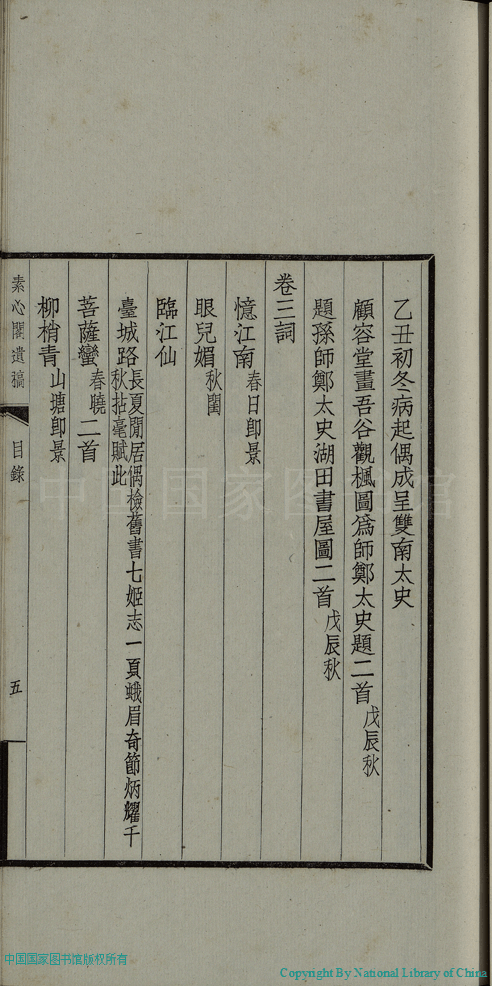 乙丑初冬病起偶成呈雙南太史
顧容堂畫吾谷觀楓圖爲師鄭太史題二首戊辰秋
題孫師鄭太史湖田書屋圖二首戊辰秋
卷三詞
憶江南春日卽景
眼兒媚秋閨
臨江仙
臺城路長夏閒居偶檢舊書七姬志一頁蛾眉奇節炳耀千
秋拈毫賦此
菩薩蠻春曉二首
柳梢青山塘卽景
素心閣遺稿
目錄
五
中国国家图书馆
中国国家图书馆版权所有
Copyright By National Library of China